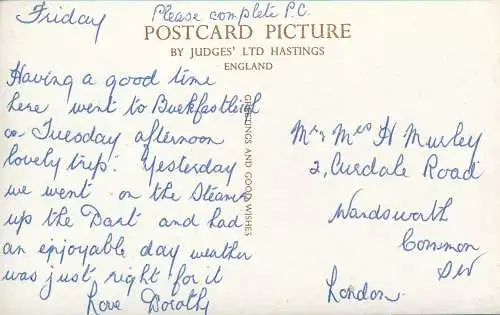 Friday
Please complete P.C.
POSTCARD PICTURE
BY JUDGES' LTD HASTINGS
ENGLAND
Having a good time
here went to Buckfastleigh
on Tuesday afternoon
lovely trip. Yesterday
we went on the Steamer
up the Dart and had
an enjoyable day weather
was just right for it
Love Dorothy
GREETINGS AND GOOD WISHES
Mr. Mrs H Murley
2, Road
Wandsworth
Common
SW
London.